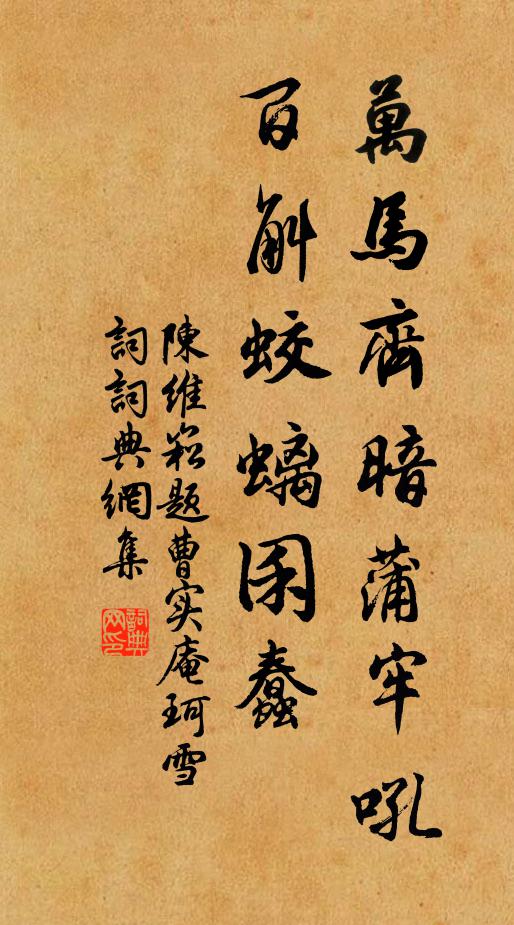 萬馬齊暗蒲牢吼
百斛蛟螭囷蠢
陳維崧題曹实庵珂雪
詞詞典網集
詞典网印